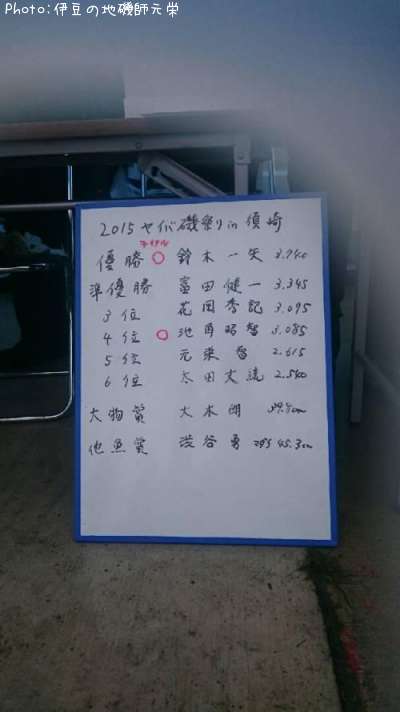 Photo:伊豆の地磯師元栄
2015 ヤイバ磯祭り in 須崎
優勝 鈴木一矢 3.940
準優勝 富田健一 3.345
3位 花岡秀記 3.095
4位 池角昭智 3.085
5位 元栄智 2.615
6位 太田丈流 2.540
大物賞 大木
他魚賞 渋谷勇 45.3cm